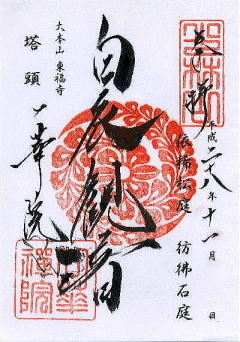 奉拝
平成二十八年十一月 日
依稀松庭 彷彿石庭
白衣観音
大本山 東福寺
塔頭 一華院